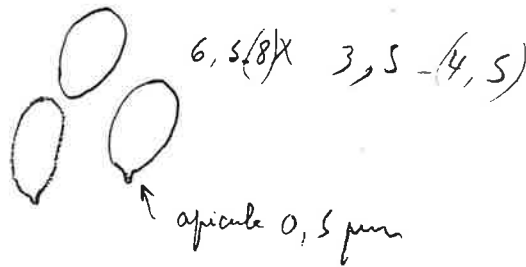 6,5(8)X 3,5-(4,5)
apicule 0,5 µm